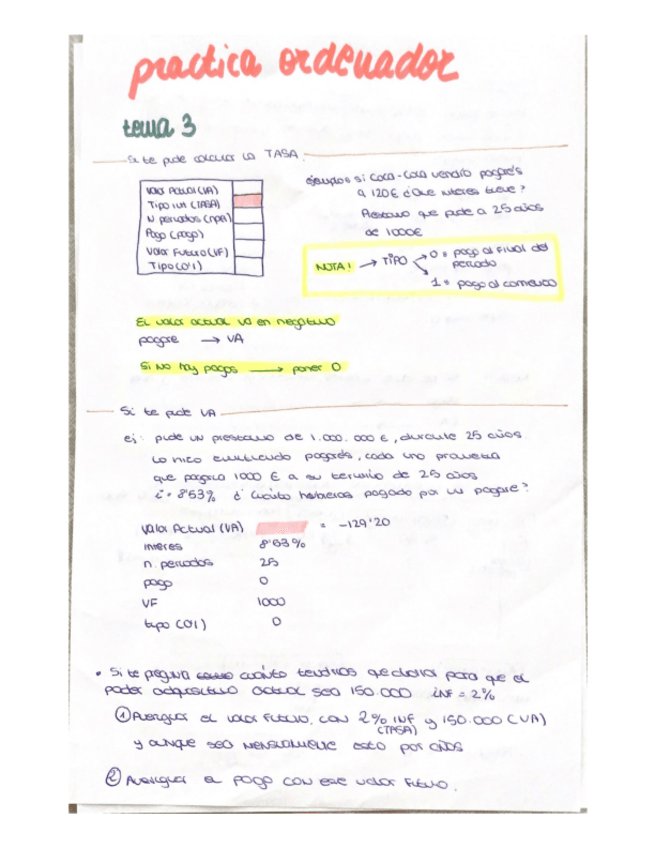 practica ordenador
tema 3
Si te pide calcular la TASA.
Valor Actual (VA)
Tipo int (TASA)
N periodos (nper)
Pago (pago)
Valor Futuro (VF)
Tipo (0/1)
ejemplo: si Coca-Cola vendió pagarés
a 120€ ¿Que interes tiene?
Prestamo que pide a 25 años
de 1000€
NOTA! → TIPO → 0 = pago al final del
periodo
1 = pago al comienzo
El valor actual va en negativo
pagare → VA
Si NO hay pagos → poner 0
Si te pide VA
ej: pide un prestamo de 1.000.000 €, durante 25 años.
Lo hizo emitiendo pagarés, cada uno prometia
que pagaria 1000 € a su termino de 25 años
i = 8'53% ¿Cuánto habremos pagado por un pagare?
Valor Actual (VA) = -129'20
interes 8'53%
n. periodos 25
pago 0
VF 1000
tipo (0/1) 0
• Si te pregunta cuánto tendrias que ahorrar para que el
poder adquisitivo actual sea 150.000 INF = 2%
① Averiguar el valor futuro, con 2% INF y 150.000 (VA)
(TASA)
y aunque sea mensualmente esto por años
② Averiguar el pago con ese valor futuro.